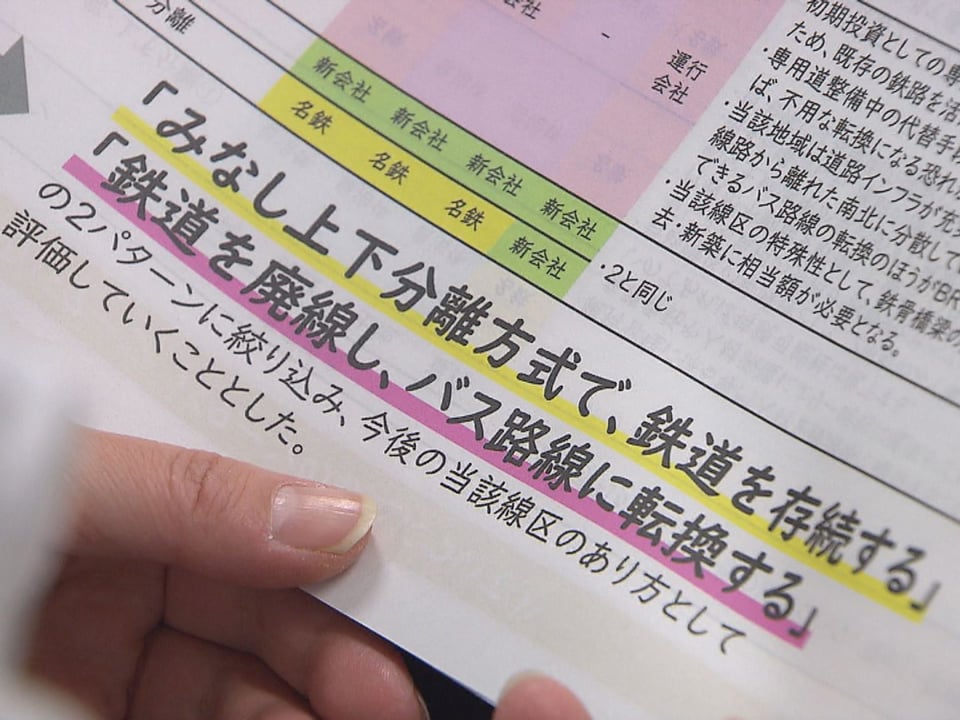 分離
会社
-
運行
会社
新会社
新会社
新会社
新会社
名鉄
名鉄
名鉄
新会社
・2と同じ
初期投資としての専
ため、既存の鉄路を活
・専用道整備中の代替手段
ば、不用な転換になる恐れ
・当該地域は道路インフラが充実
線路から離れた南北に分散して
できるバス路線の転換のほうがBR
・当該線区の特殊性として、鉄骨橋梁の
去・新築に相当額が必要となる。
「みなし上下分離方式で、鉄道を存続する」
「鉄道を廃線し、バス路線に転換する」
の2パターンに絞り込み、今後の当該線区のあり方として
評価していくこととした。